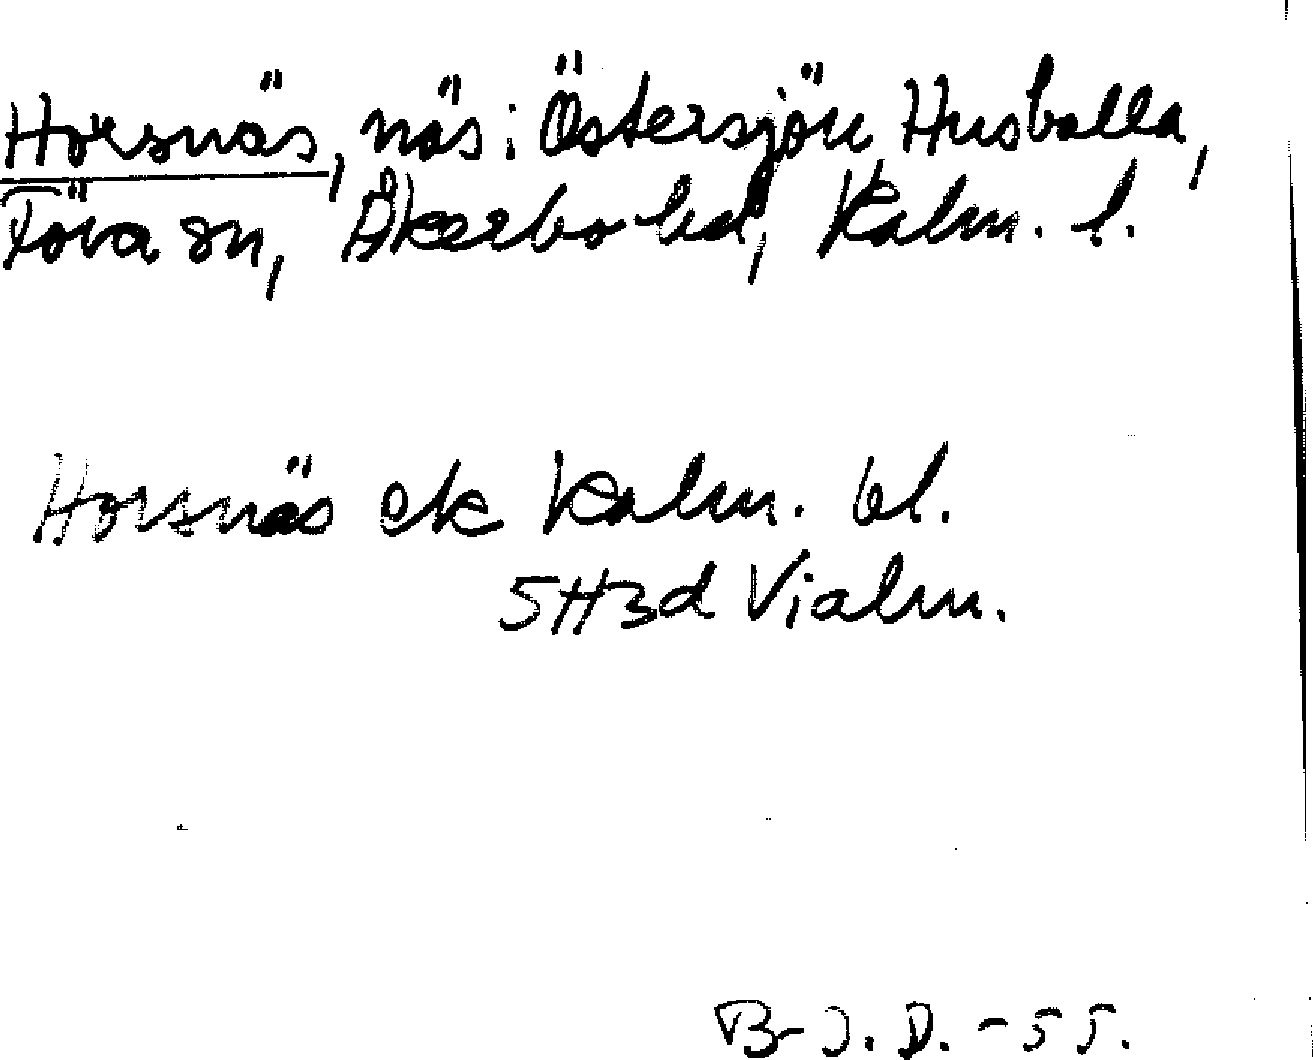 Horsnäs, näs i Östersjön, Husvalla,
Föra sn, Åkerbo hd, Kalm. l.
Horsnäs ek Kalm. bl.
5H3d Vialm.
B-J. D. -55.